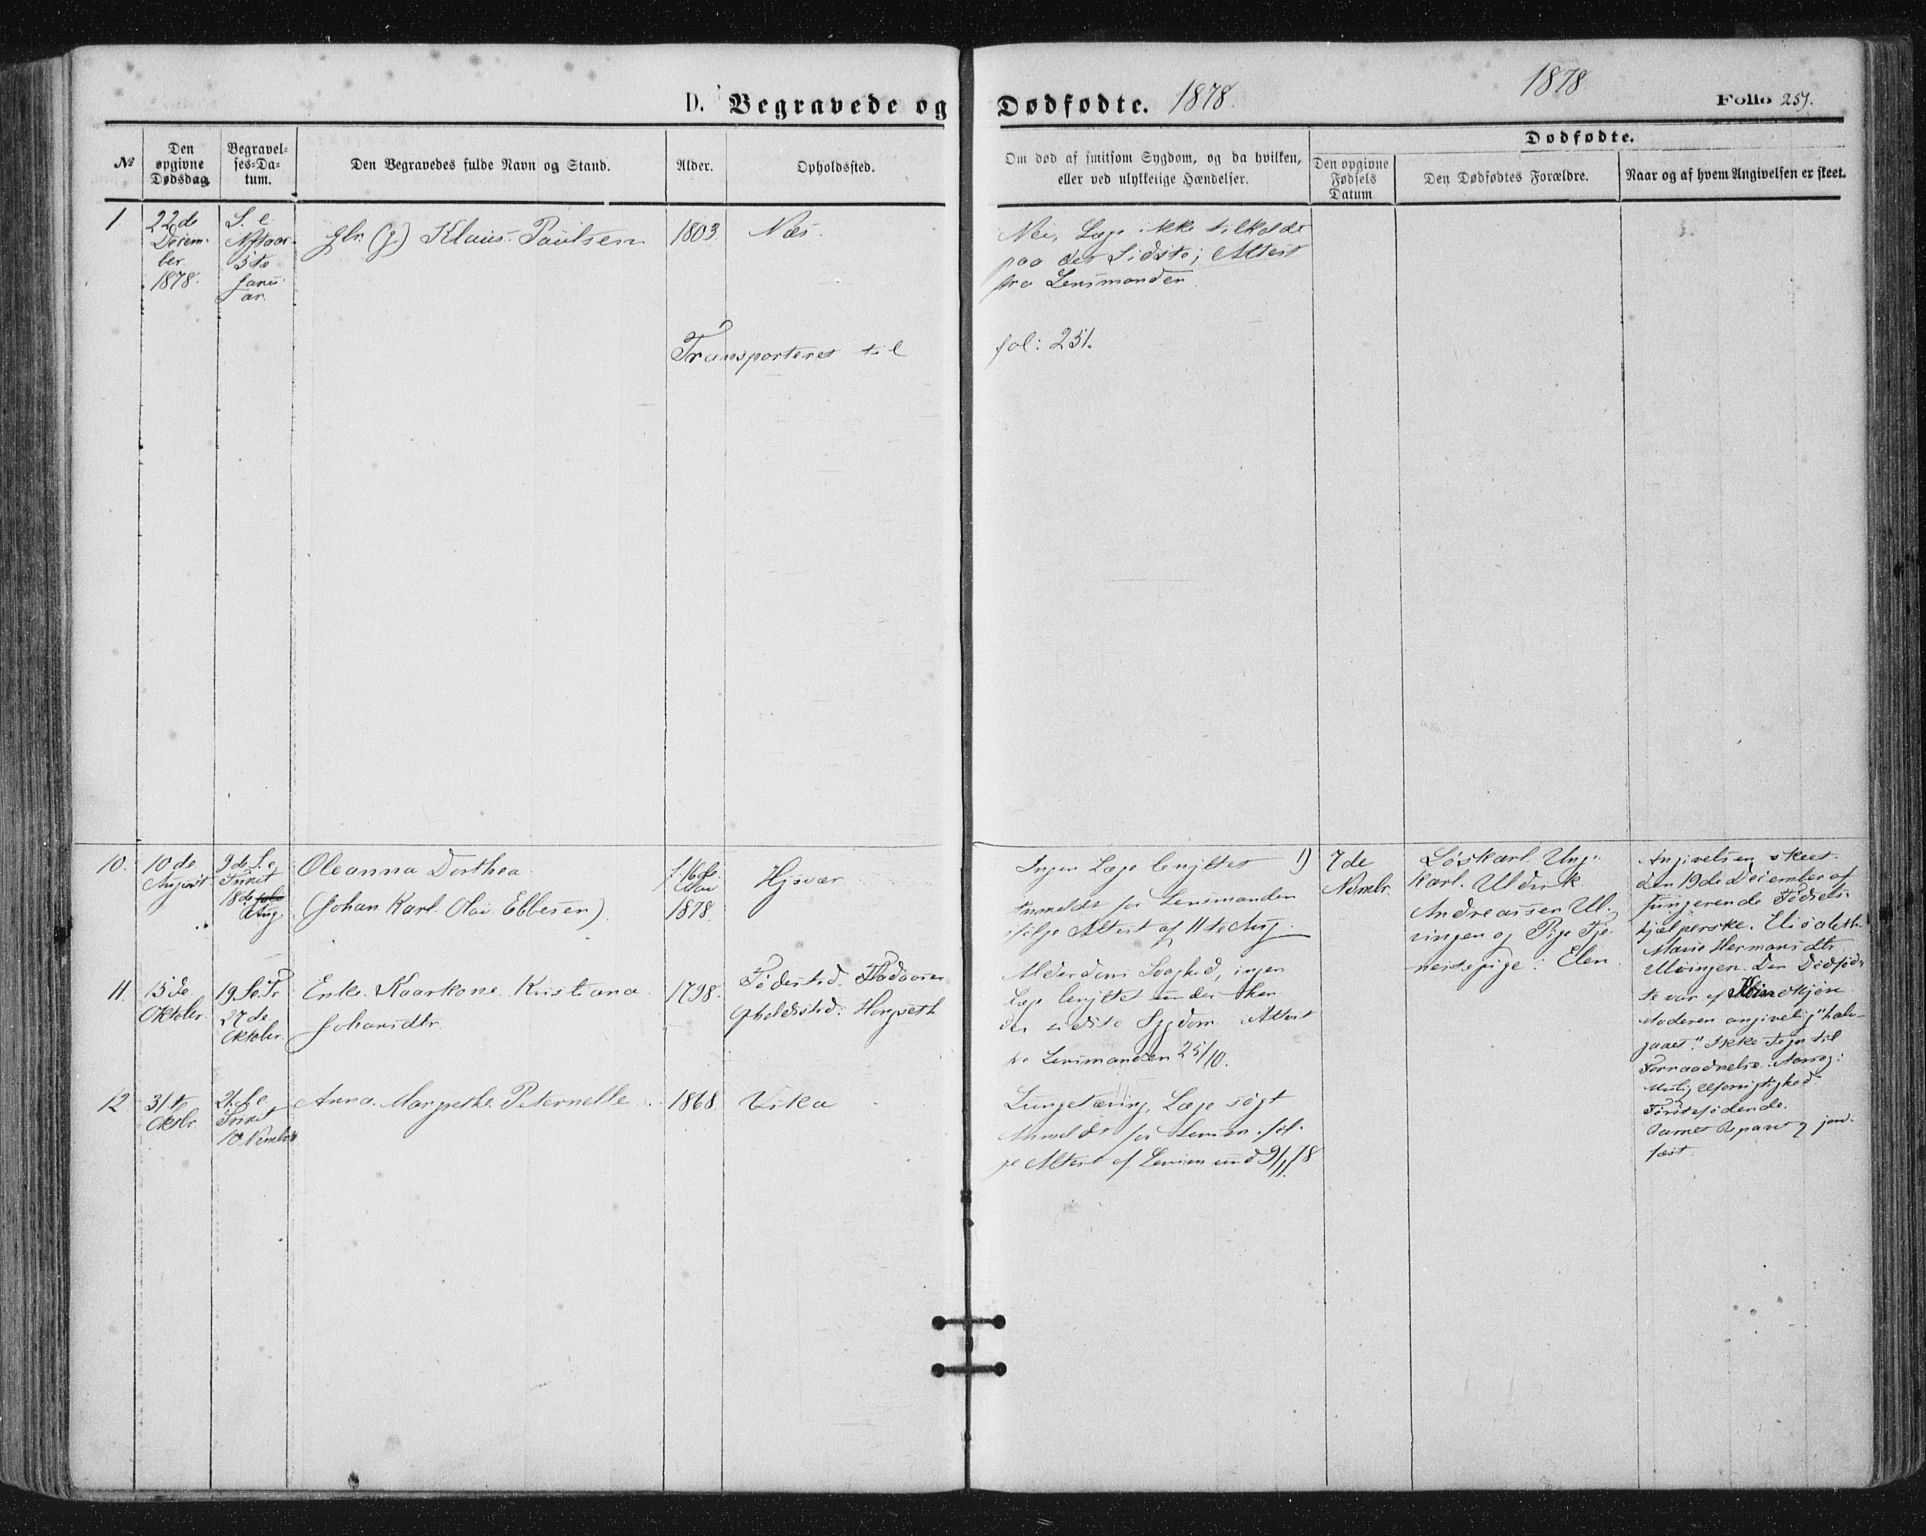 D. Begravede og Dødfødte. 1878.
1878
Folio 251.
№
Den opgivne Dødsdag
Begravelses-Datum.
Den Begravedes fulde Navn og Stand.
Alder.
Opholdssted.
Om død af smitsom Sygdom, og da hvilken,
eller ved ulykkelige Hændelser.
Dødfødte.
Den opgivne Fødsels Datum
Den Dødfødtes Forældre.
Naar og af hvem Angivelsen er skeet.
1
22de
Decem-
ber.
1878.
S. e
Nytaar
5te
Janu-
ar.
glr. (g) Klaus Paulsen
1803.
Næs.
Nei, Læge ikke tilkaldt
paa det Sidste; Attest
fra Lensmanden.
Transporteret til
fol: 251.
10.
10de
August
9de S. e
Trinit
18de
Aug.
Oleanna Dorthea
(Johan Karl Olai Ebbesen)
16de
Mai
1878
Hjsvær
Ingen Læge benyttet
Anmeldt for Lensmanden
ifølge Attest af 11te Aug.
1)
7de
Novembr.
Løskarl Ung-
karl Ulderik
Andreassen Ul-
vingen og Pige Tje-
nestepige: Elen
Angivelsen skeet
den 19de December af
fungerende Fødsels-
hjælperske Elisabeth
Marie Hermansdtr
Ulvingen. Den Dødfød-
te var af kjøn
Moderen angivelig "halv-
gaaet". Ikke Tegn til
Forraadnelse. Aarsag:
Mulig Uforsigtighed
Førstefødende.
11.
15de
Oktober.
19 S. e Tr
27de
Oktober
Enke Kaarkone Kristiana
Johansdtr
1798.
Fødested:
Opholdssted:
Alderdoms Svaghed, ingen
Læge benyttet under
den sidste Sygdom. Attest
fra Lensmanden 25/10.
12
31te
Oktbr.
21de S. e
Trinit
10. Novembr
Anna Margrethe Peternelle
1868.
Vika
Lungetæring, Læge søgt
Anmeldt for Lensm. føl-
ge Attest af Lensmand 9/11 78